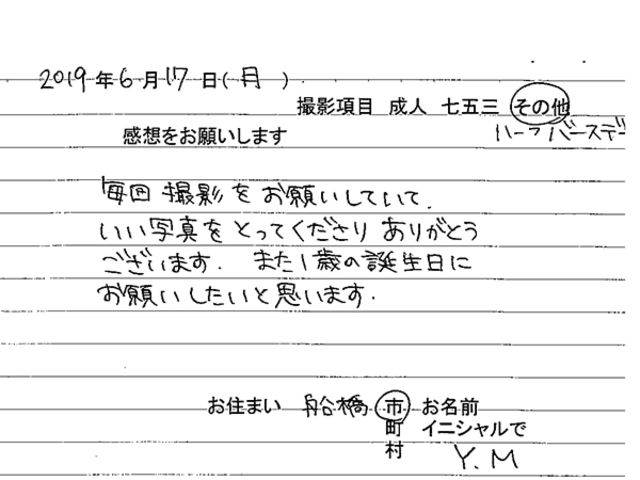 2019年6月17日(月)
撮影項目 成人 七五三 その他
ハーフバースデー
感想をお願いします
毎回撮影をお願いしていて、
いい写真をとってくださりありがとう
ございます. また1歳の誕生日に
お願いしたいと思います.
お住まい 船橋 市 お名前
町 イニシャルで
村 Y.M